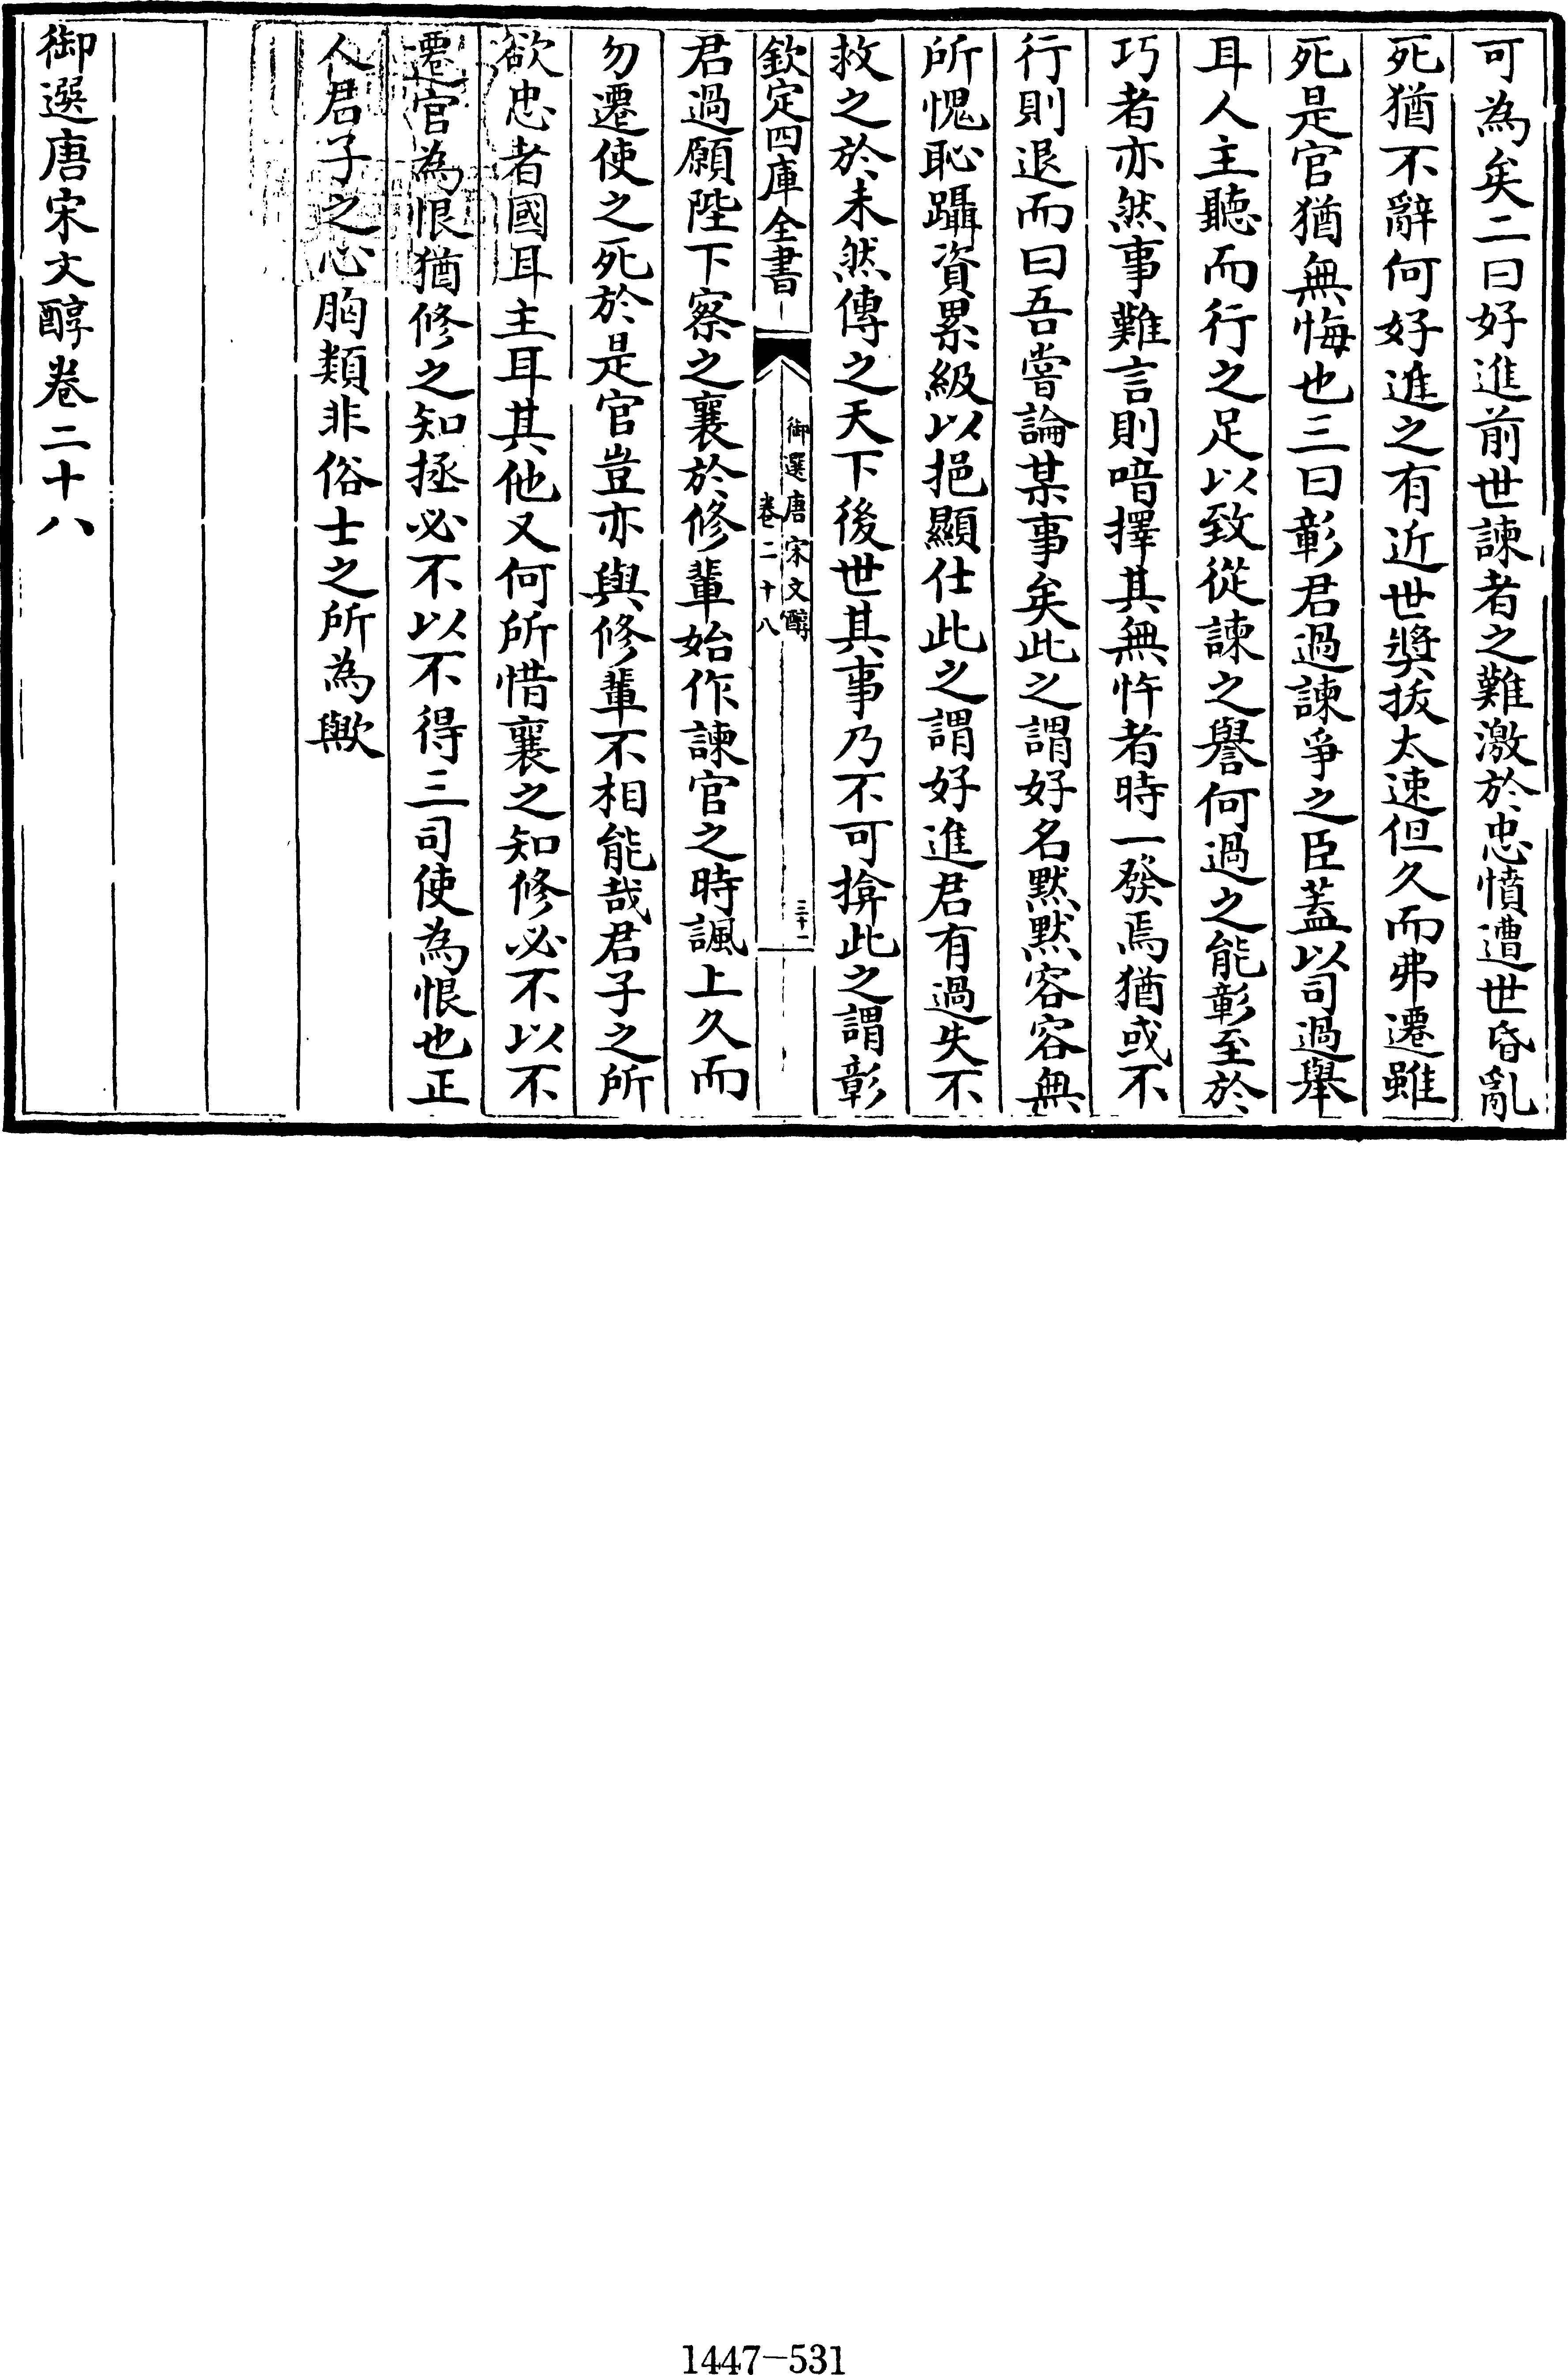 可為矣二曰好進前世諫者之難激於忠憤遭世昏亂
死猶不辭何好進之有近世奬拔太速但久而弗遷雖
死是官猶無悔也三曰彰君過諫爭之臣蓋以司過舉
耳人主聽而行之足以致從諫之譽何過之能彰至於
巧者亦然事難言則喑擇其無忤者時一發焉猶或不
行則退而曰吾嘗論某事矣此之謂好名默默容容無
所愧恥躡資累級以挹顯仕此之謂好進君有過失不
救之於未然傳之天下後世其事乃不可揜此之謂彰
欽定四庫全書
御選唐宋文醇
卷二十八
三十一
君過願陛下察之襄於修輩始作諫官之時諷上久而
勿遷使之死於是官豈亦與修輩不相能哉君子之所
欲忠者國耳主耳其他又何所惜襄之知修必不以不
遷官為恨猶修之知拯必不以不得三司使為恨也正
人君子之心胷類非俗士之所為歟
御選唐宋文醇卷二十八
1447-531